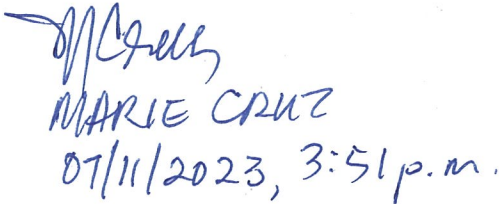 MARIE CRUZ
07/11/2023, 3:51 p.m.